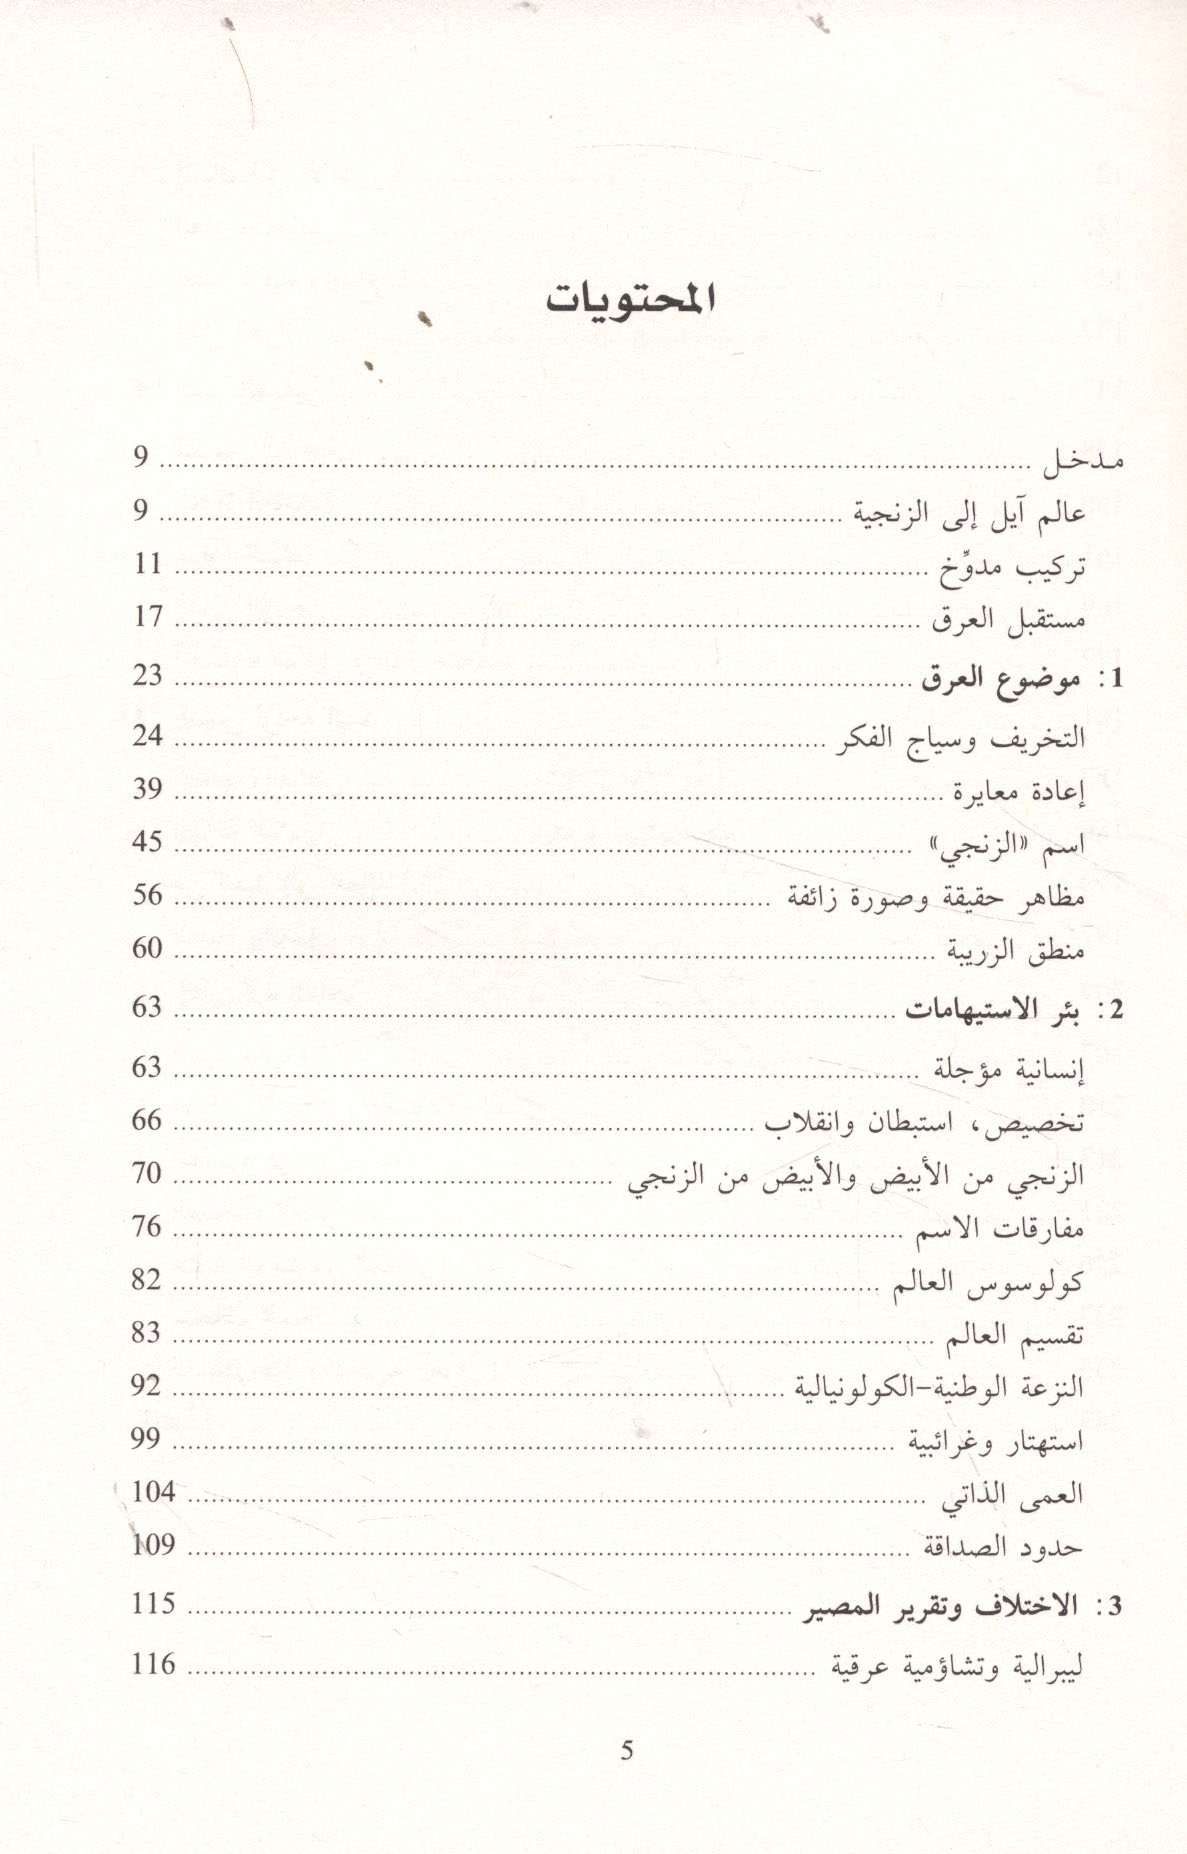 المحتويات
مدخل ........ 9
عالم آيل إلى الزنجية ........ 9
تركيب مدوِّخ ........ 11
مستقبل العرق ........ 17
1: موضوع العرق ........ 23
التخريف وسياج الفكر ........ 24
إعادة معايرة ........ 39
اسم «الزنجي» ........ 45
مظاهر حقيقة وصورة زائفة ........ 56
منطق الزريبة ........ 60
2: بئر الاستيهامات ........ 63
إنسانية مؤجلة ........ 63
تخصيص، استبطان وانقلاب ........ 66
الزنجي من الأبيض والأبيض من الزنجي ........ 70
مفارقات الاسم ........ 76
كولوسوس العالم ........ 82
تقسيم العالم ........ 83
النزعة الوطنية-الكولونيالية ........ 92
استهتار وغرائبية ........ 99
العمى الذاتي ........ 104
حدود الصداقة ........ 109
3: الاختلاف وتقرير المصير ........ 115
ليبرالية وتشاؤمية عرقية ........ 116
5